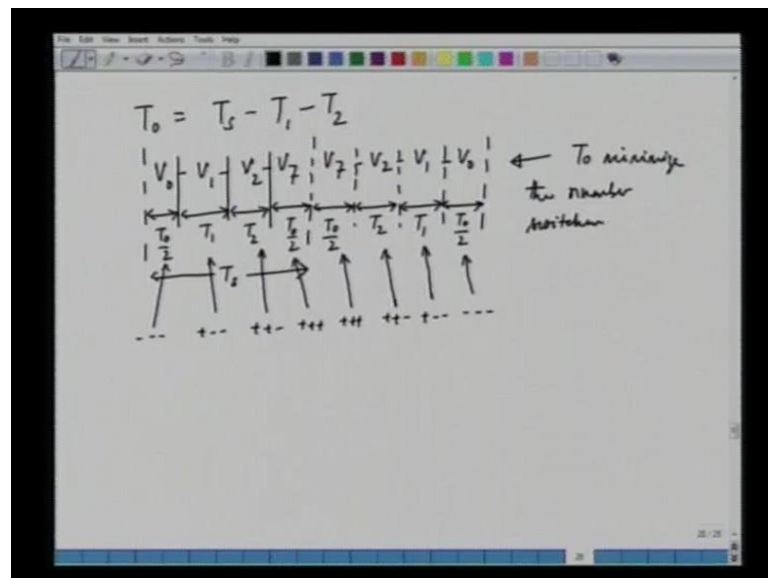 File Edit View Insert Actions Tools Help
T₀ = Tₛ - T₁ - T₂
V₀ V₁ V₂ V₇ V₇ V₂ V₁ V₀ ← To minimize
the number
T₀/2 T₁ T₂ T₀/2 T₀/2 T₂ T₁ T₀/2
Tₛ
--- +-- ++- +++ +++ ++- +-- ---